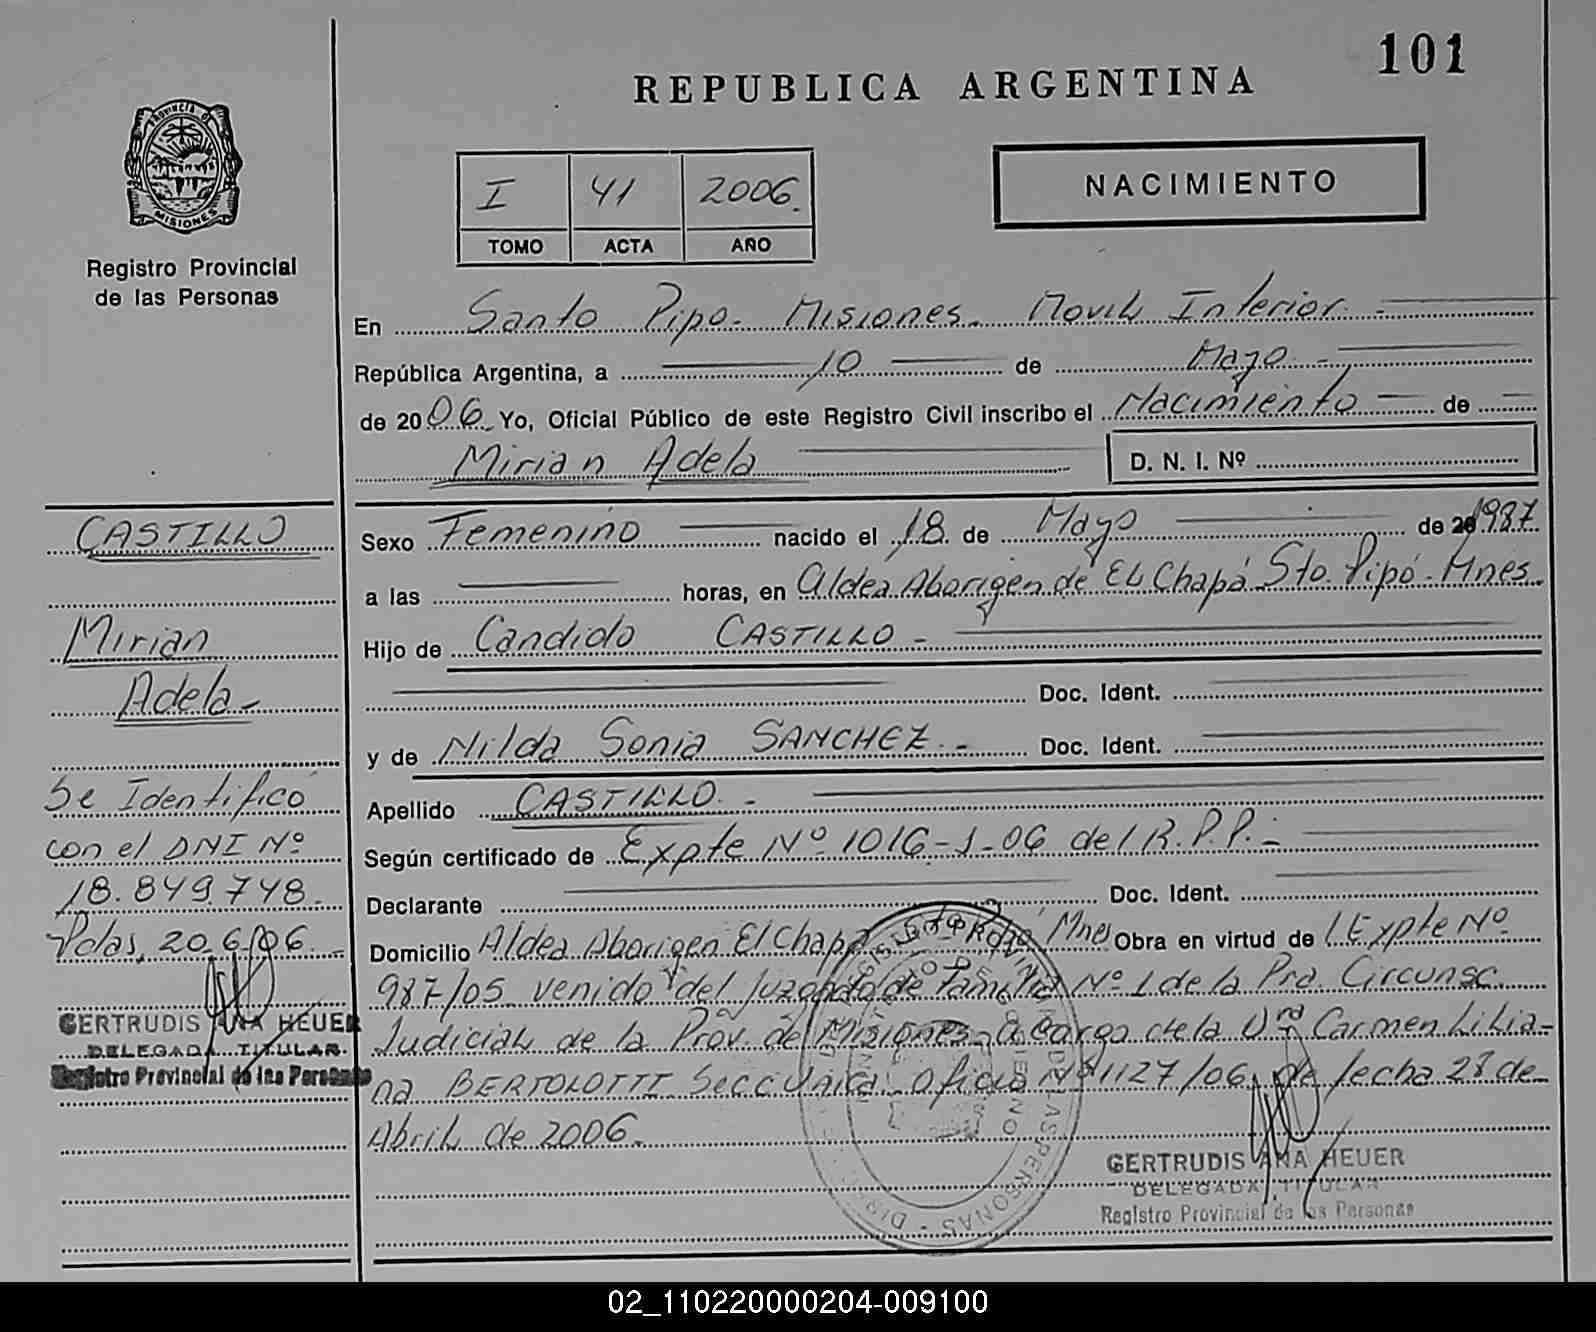 101
REPUBLICA ARGENTINA
PROVINCIA D
MISIONES
Registro Provincial
de las Personas
I 41 2006.
TOMO ACTA AÑO
NACIMIENTO
En Santo Pipo- Misiones- Movil Interior.-
República Argentina, a 10 de Mayo-
de 2006. Yo, Oficial Público de este Registro Civil inscribo el Nacimiento de
Mirian Adela
D. N. I. Nº
CASTILLO
Mirian
Adela-
Se Identificó
con el DNI Nº
18.849.748.
Pdas, 20.6/06.-
GERTRUDIS ANA HEUER
DELEGADA TITULAR
Registro Provincial de las Personas
Sexo Femenino nacido el 18 de Mayo de 20 1987
a las horas, en Aldea Aborigen de El Chapá Sto. Pipó-Mnes.
Hijo de Candido CASTILLO-
Doc. Ident.
y de Nilda Sonia SANCHEZ.- Doc. Ident.
Apellido CASTILLO.-
Según certificado de Expte Nº 1016-J-06 del R.P.P.:-
Declarante Doc. Ident.
Domicilio Aldea Aborigen El Chapá Mnes Obra en virtud del Expte Nº
987/05 venido del juzgado de Familia Nº 1 de la Pra. Circunsc.
Judicial de la Prov. de Misiones- a cargo de la Dra Carmen Lilia-
na BERTOLOTTI Secc Unica- Oficio Nº 1127/06, de fecha 28 de
Abril de 2006.
GERTRUDIS ANA HEUER
DELEGADA TITULAR
Registro Provincial de las Personas
02_110220000204-009100